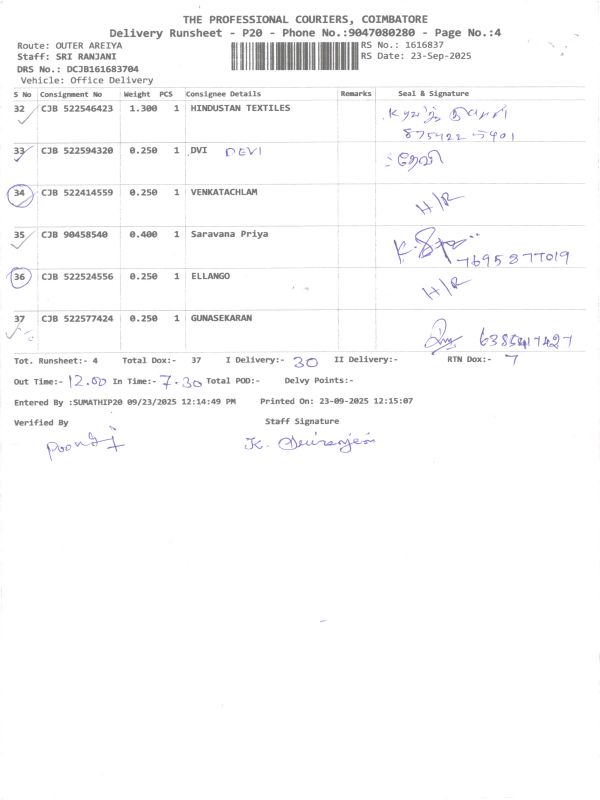 THE PROFESSIONAL COURIERS, COIMBATORE
Delivery Runsheet - P20 - Phone No.:9047080280 - Page No.:4
Route: OUTER AREIYA RS No.: 1616837
Staff: SRI RANJANI RS Date: 23-Sep-2025
DRS No.: DCJB161683704
Vehicle: Office Delivery
S No Consignment No Weight PCS Consignee Details Remarks Seal & Signature
32 CJB 522546423 1.300 1 HINDUSTAN TEXTILES
33 CJB 522594320 0.250 1 DVI DEVI தேவி
34 CJB 522414559 0.250 1 VENKATACHLAM H/R
35 CJB 90458540 0.400 1 Saravana Priya
7695877019
36 CJB 522524556 0.250 1 ELLANGO H/R
37 CJB 522577424 0.250 1 GUNASEKARAN
Tot. Runsheet:- 4 Total Dox:- 37 I Delivery:- 30 II Delivery:- RTN Dox:- 7
Out Time:- 12.00 In Time:- 7.30 Total POD:- Delvy Points:-
Entered By :SUMATHIP20 09/23/2025 12:14:49 PM Printed On: 23-09-2025 12:15:07
Verified By Staff Signature